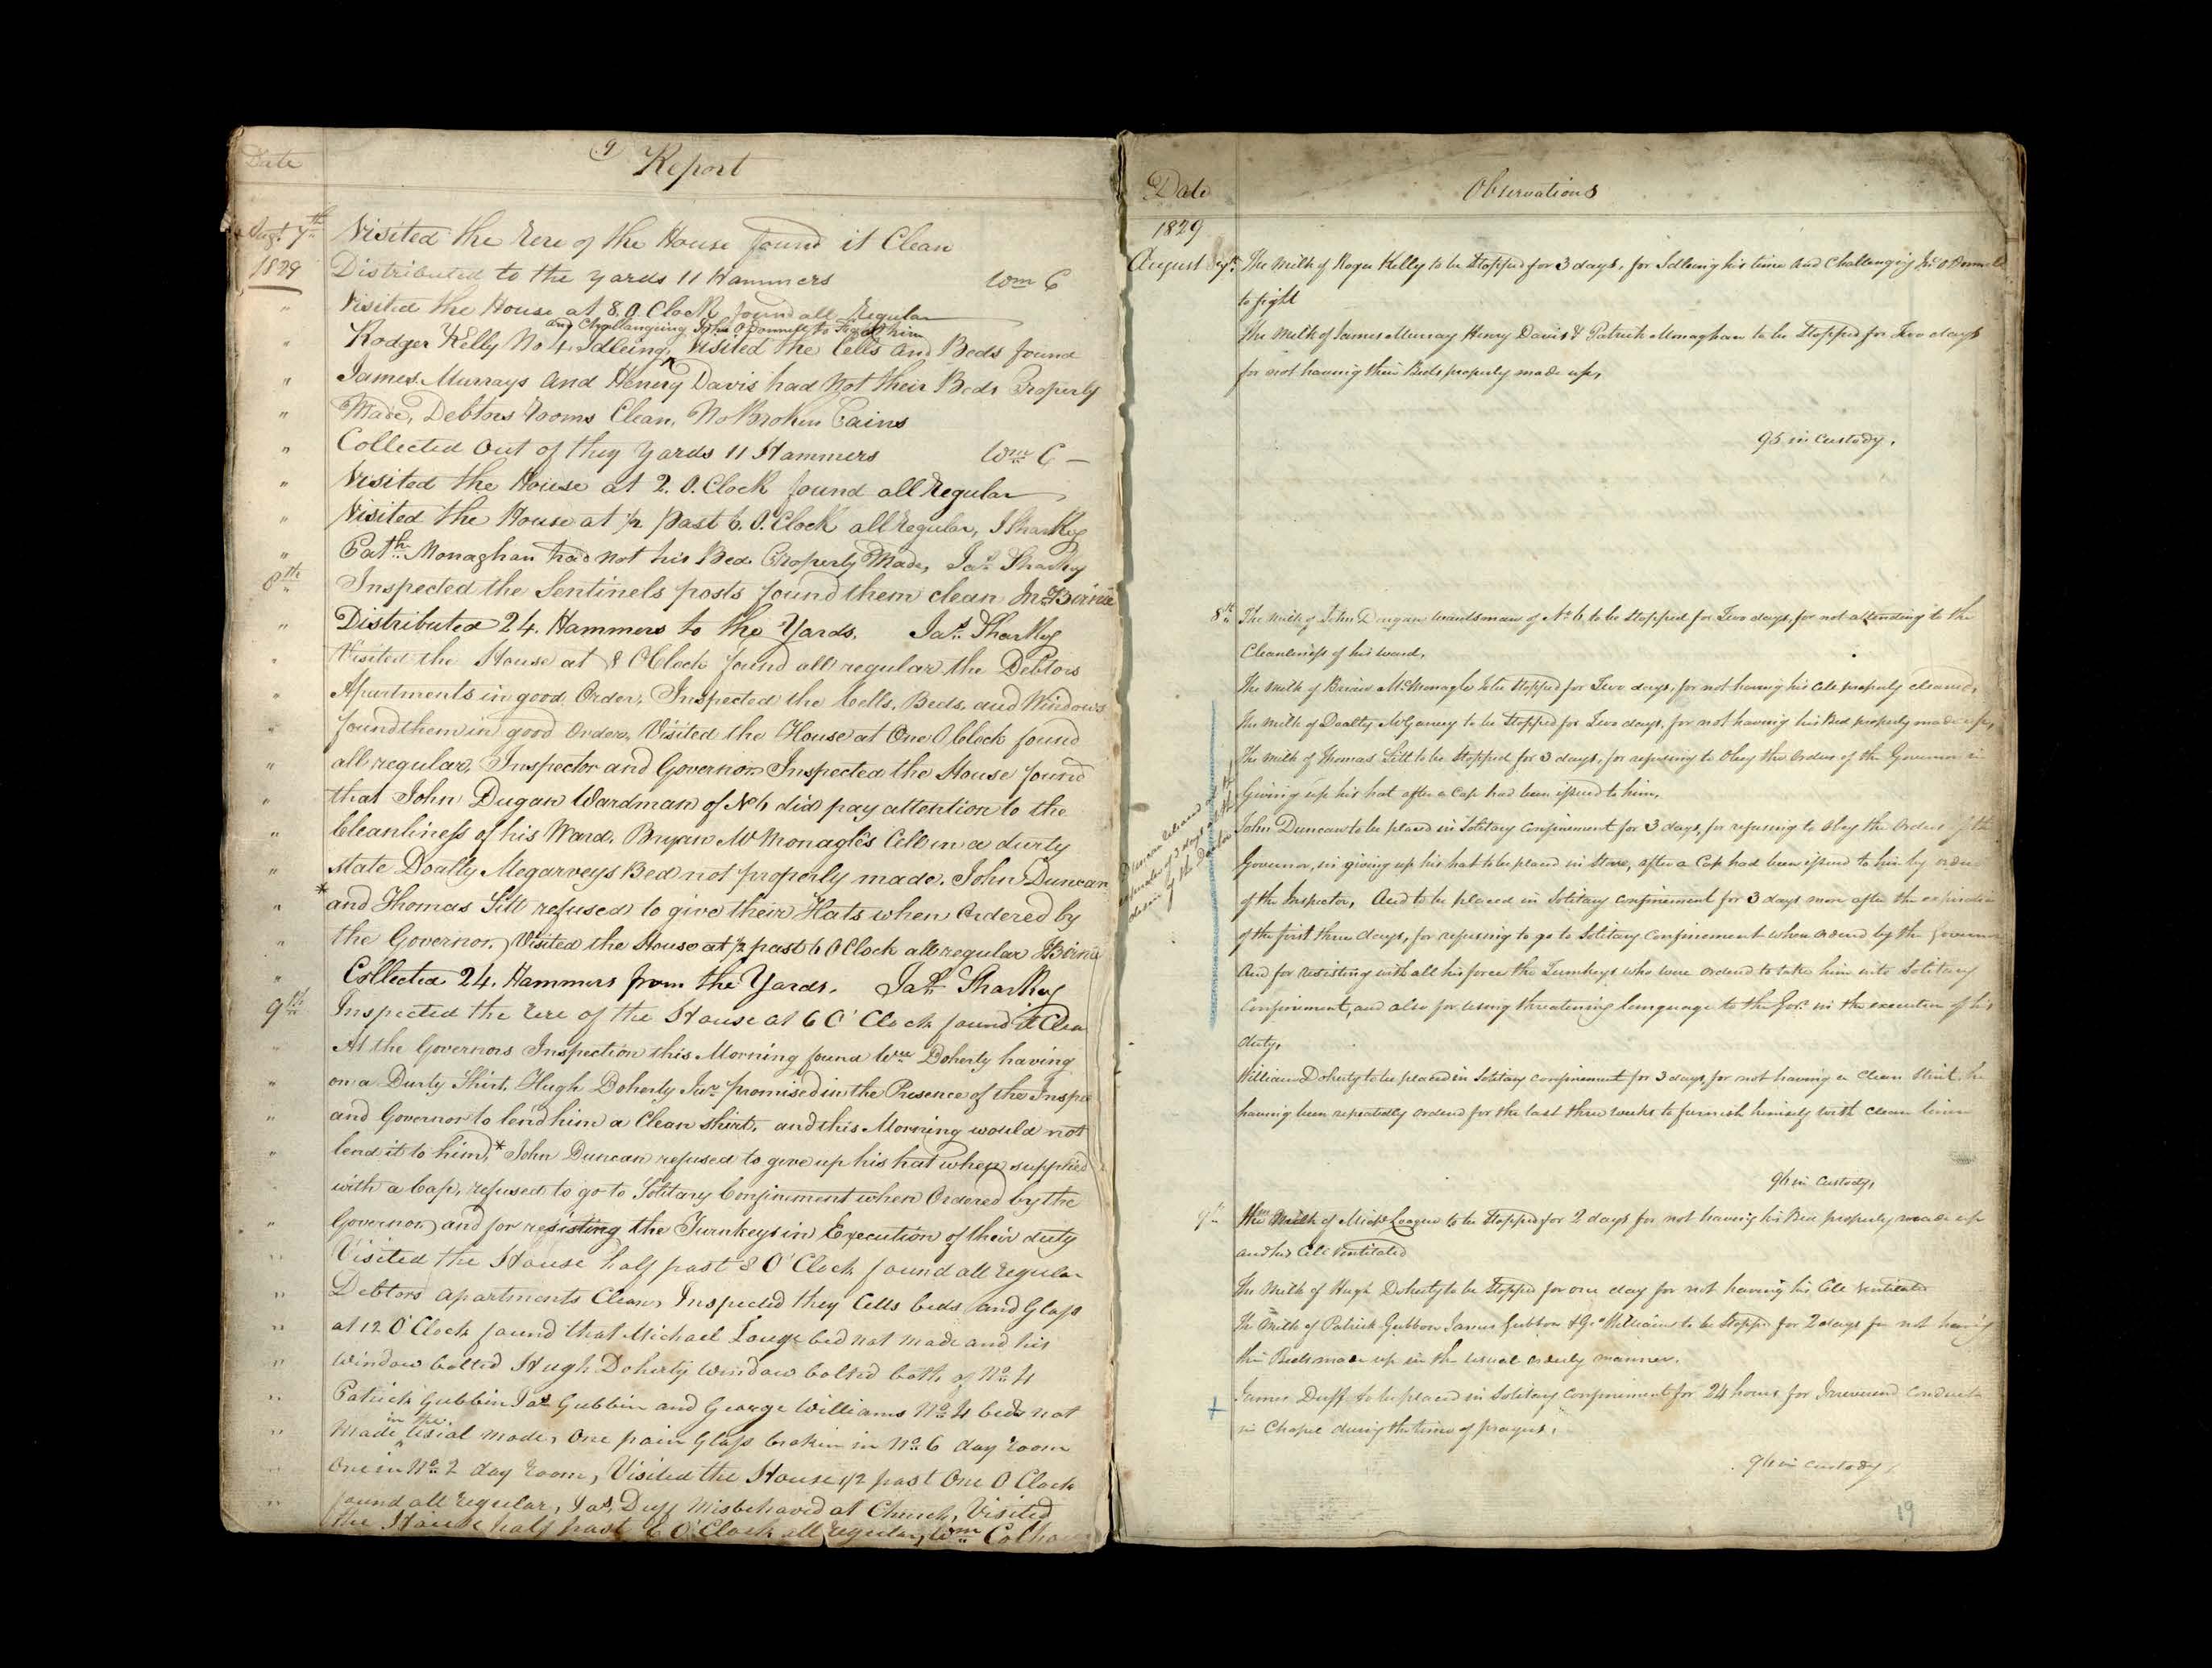 Date
9 Report
Augt. 7th Visited the Rere of the House found it Clean
1829 Distributed to the yards 11 Hammers Wm C
" Visited the House at 8. O. Clock found all Regular
and Challangeing John O Donnell to Fight him
" Rodger Kelly No 4 Idleing, ^ Visited the Cells and Beds found
" James Murrays and Henery Davis had Not their Beds Properly
" Made, Debtors rooms Clean, No Broken Pains
" Collected Out of they Yards 11 Hammers Wm C —
" Visited the House at 2. O. Clock found all Regular
" Visited the House at ½ past 6. O. Clock all regular, J Sharkey
" Patk. Monaghan had not his Bed Properly Made, Jas. Sharkey
8th Inspected the Sentinels posts found them clean Jn. Birnie
" Distributed 24. Hammers to the Yards. Jas. Sharkey
" Visited the House at 8 O Clock found all regular the Debtors
" Apartments in good Order, Inspected the Cells, Beds, and Windows
" found them in good Order, Visited the House at One O Clock found
" all regular, Inspector and Governor Inspected the House found
" that John Dugan Wardman of No 6 did pay attention to the
" Cleanliness of his Ward. Bryan McMonagle's Cell in a durty
" state Doally Megarveys Bed not properly made. John Duncan
" * and Thomas Litt refused to give their Hats when Ordered by
" the Governor, Visited the House at ½ past 6 O Clock all regular J Birnie
" Collected 24. Hammers from the Yards. Jas. Sharkey
9th Inspected the Rere of the House at 6 O' Clock found it Clea
" At the Governors Inspection this Morning found Wm Doherty having
" on a Durty Shirt. Hugh Doherty Junr promised in the Presence of the Inspe
" and Governor to lend him a Clean shirt, and this Morning would not
" lend it to him, * John Duncan refused to give up his hat when supplied
" with a Cap, refused to go to Solitary Confinement when Ordered by the
" Governor and for resisting the Turnkeys in Execution of their duty
" Visited the House half past 8 O' Clock found all regular
" Debtors apartments Clean, Inspected they Cells beds and Glass
" at 12 O' Clock found that Michael bed not made and his
" Window bolted Hugh Doherty window bolted both of No 4
" Patrick Gubbin Jas Gubbin and George Williams No 4 beds not
in the
" Made ^ usial mode, One pain Glass broken in No 6 day room
" One in No 2 day room, Visited the House ½ past One O Clock
" found all regular, Jas. Duff Misbehaved at Church, Visited
the House half past 6 O' Clock all regular, Wm Colho
Date Observations
1829
August 7th The Milk of Roger Kelly to be Stopped for 3 days, for Idleing his time and Challenging Jno O Donnell
to fight
The Milk of James Murray Henry Davis & Patrick Monaghan to be Stopped for Two days
for not having their Beds properly made up,
95 in Custody,
8th The Milk of John Dugan Wardsman of No 6 to be stopped for Two days, for not attending to the
Cleanliness of his ward,
The Milk of Brian McMonagle to be stopped for Two days, for not having his Cell properly cleaned,
The Milk of Doalty McGarvey to be Stopped for Two days, for not having his Bed properly made up,
The Milk of Thomas Litt to be Stopped for 3 days, for refusing to Obey the Orders of the Governor in
Giving up his hat after a Cap had been issued to him,
John Duncan to be placed in Solitary Confinement for 3 days, for refusing to Obey the Orders of the
Governor, in giving up his hat to be placed in Store, after a Cap had been issued to him by order
of the Inspector, And to be placed in Solitary Confinement for 3 days more after the expiration
of the first three days, for refusing to go to Solitary Confinement when ordered by the Governor
And for resisting with all his force the Turnkeys who were ordered to take him into Solitary
Confinement, and also for using threatening language to the Govr. in the execution of his
duty,
Duncan released
remainder of 3 days
desire of the Doctor
William Doherty to be placed in Solitary Confinement for 3 days, for not having a Clean Shirt, he
having been repeatedly ordered for the last three weeks to furnish himself with Clean linen
96 in Custody,
9th The Milk of Michl Loague to be Stopped for 2 days for not having his Bed properly made up
and his Cell Ventilated
The Milk of Hugh Doherty to be Stopped for one day for not having his Cell Ventilated
The Milk of Patrick Gubbon James Gubbon & Geo Williams to be Stopped for 2 days for not having
their Beds made up in the usual orderly manner.
+ James Duff to be placed in Solitary Confinement for 24 hours for Irreverend Conduct
in Chapel during the time of prayers,
96 in Custody,
19